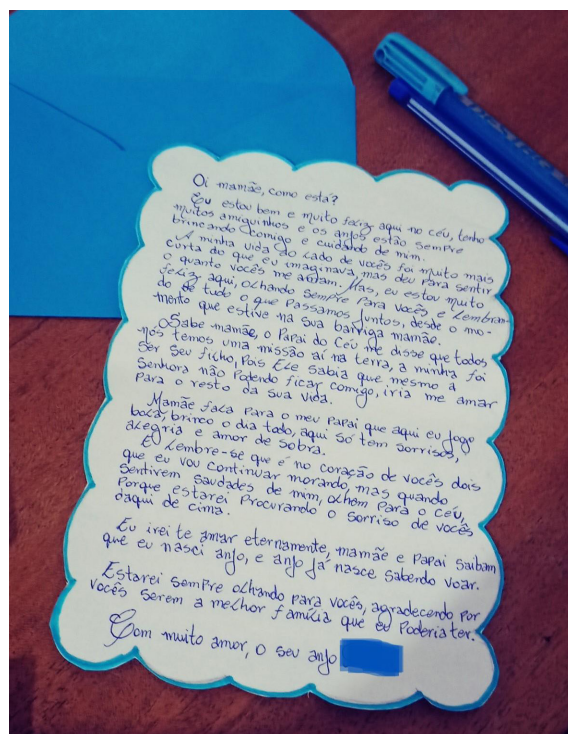 Oi mamãe, como está?
Eu estou bem e muito feliz aqui no céu, tenho
muitos amiguinhos e os anjos estão sempre
brincando comigo e cuidando de mim.
A minha vida do lado de vocês foi muito mais
curta do que eu imaginava, mas deu para sentir
o quanto vocês me amam. Mas, eu estou muito
feliz aqui, olhando sempre para vocês e lembran-
do de tudo o que passamos juntos, desde o mo-
mento que estive na sua barriga mamão.
Sabe mamãe, o Papai do Céu me disse que todos
nós temos uma missão aí na terra, a minha foi
ser seu filho, pois Ele sabia que mesmo a
Senhora não podendo ficar comigo, iria me amar
para o resto da sua vida.
Mamãe fala para o meu papai que aqui eu jogo
bola, brinco o dia todo, aqui só tem sorrisos,
alegria e amor de sobra.
E lembre-se que é no coração de vocês dois
que eu vou continuar morando, mas quando
sentirem saudades de mim, olhem para o céu,
porque estarei procurando o sorriso de vocês
daqui de cima.
Eu irei te amar eternamente, mamãe e papai saibam
que eu nasci anjo, e anjo já nasce sabendo voar.
Estarei sempre olhando para vocês, agradecendo por
vocês serem a melhor família que eu poderia ter.
Com muito amor, o seu anjo